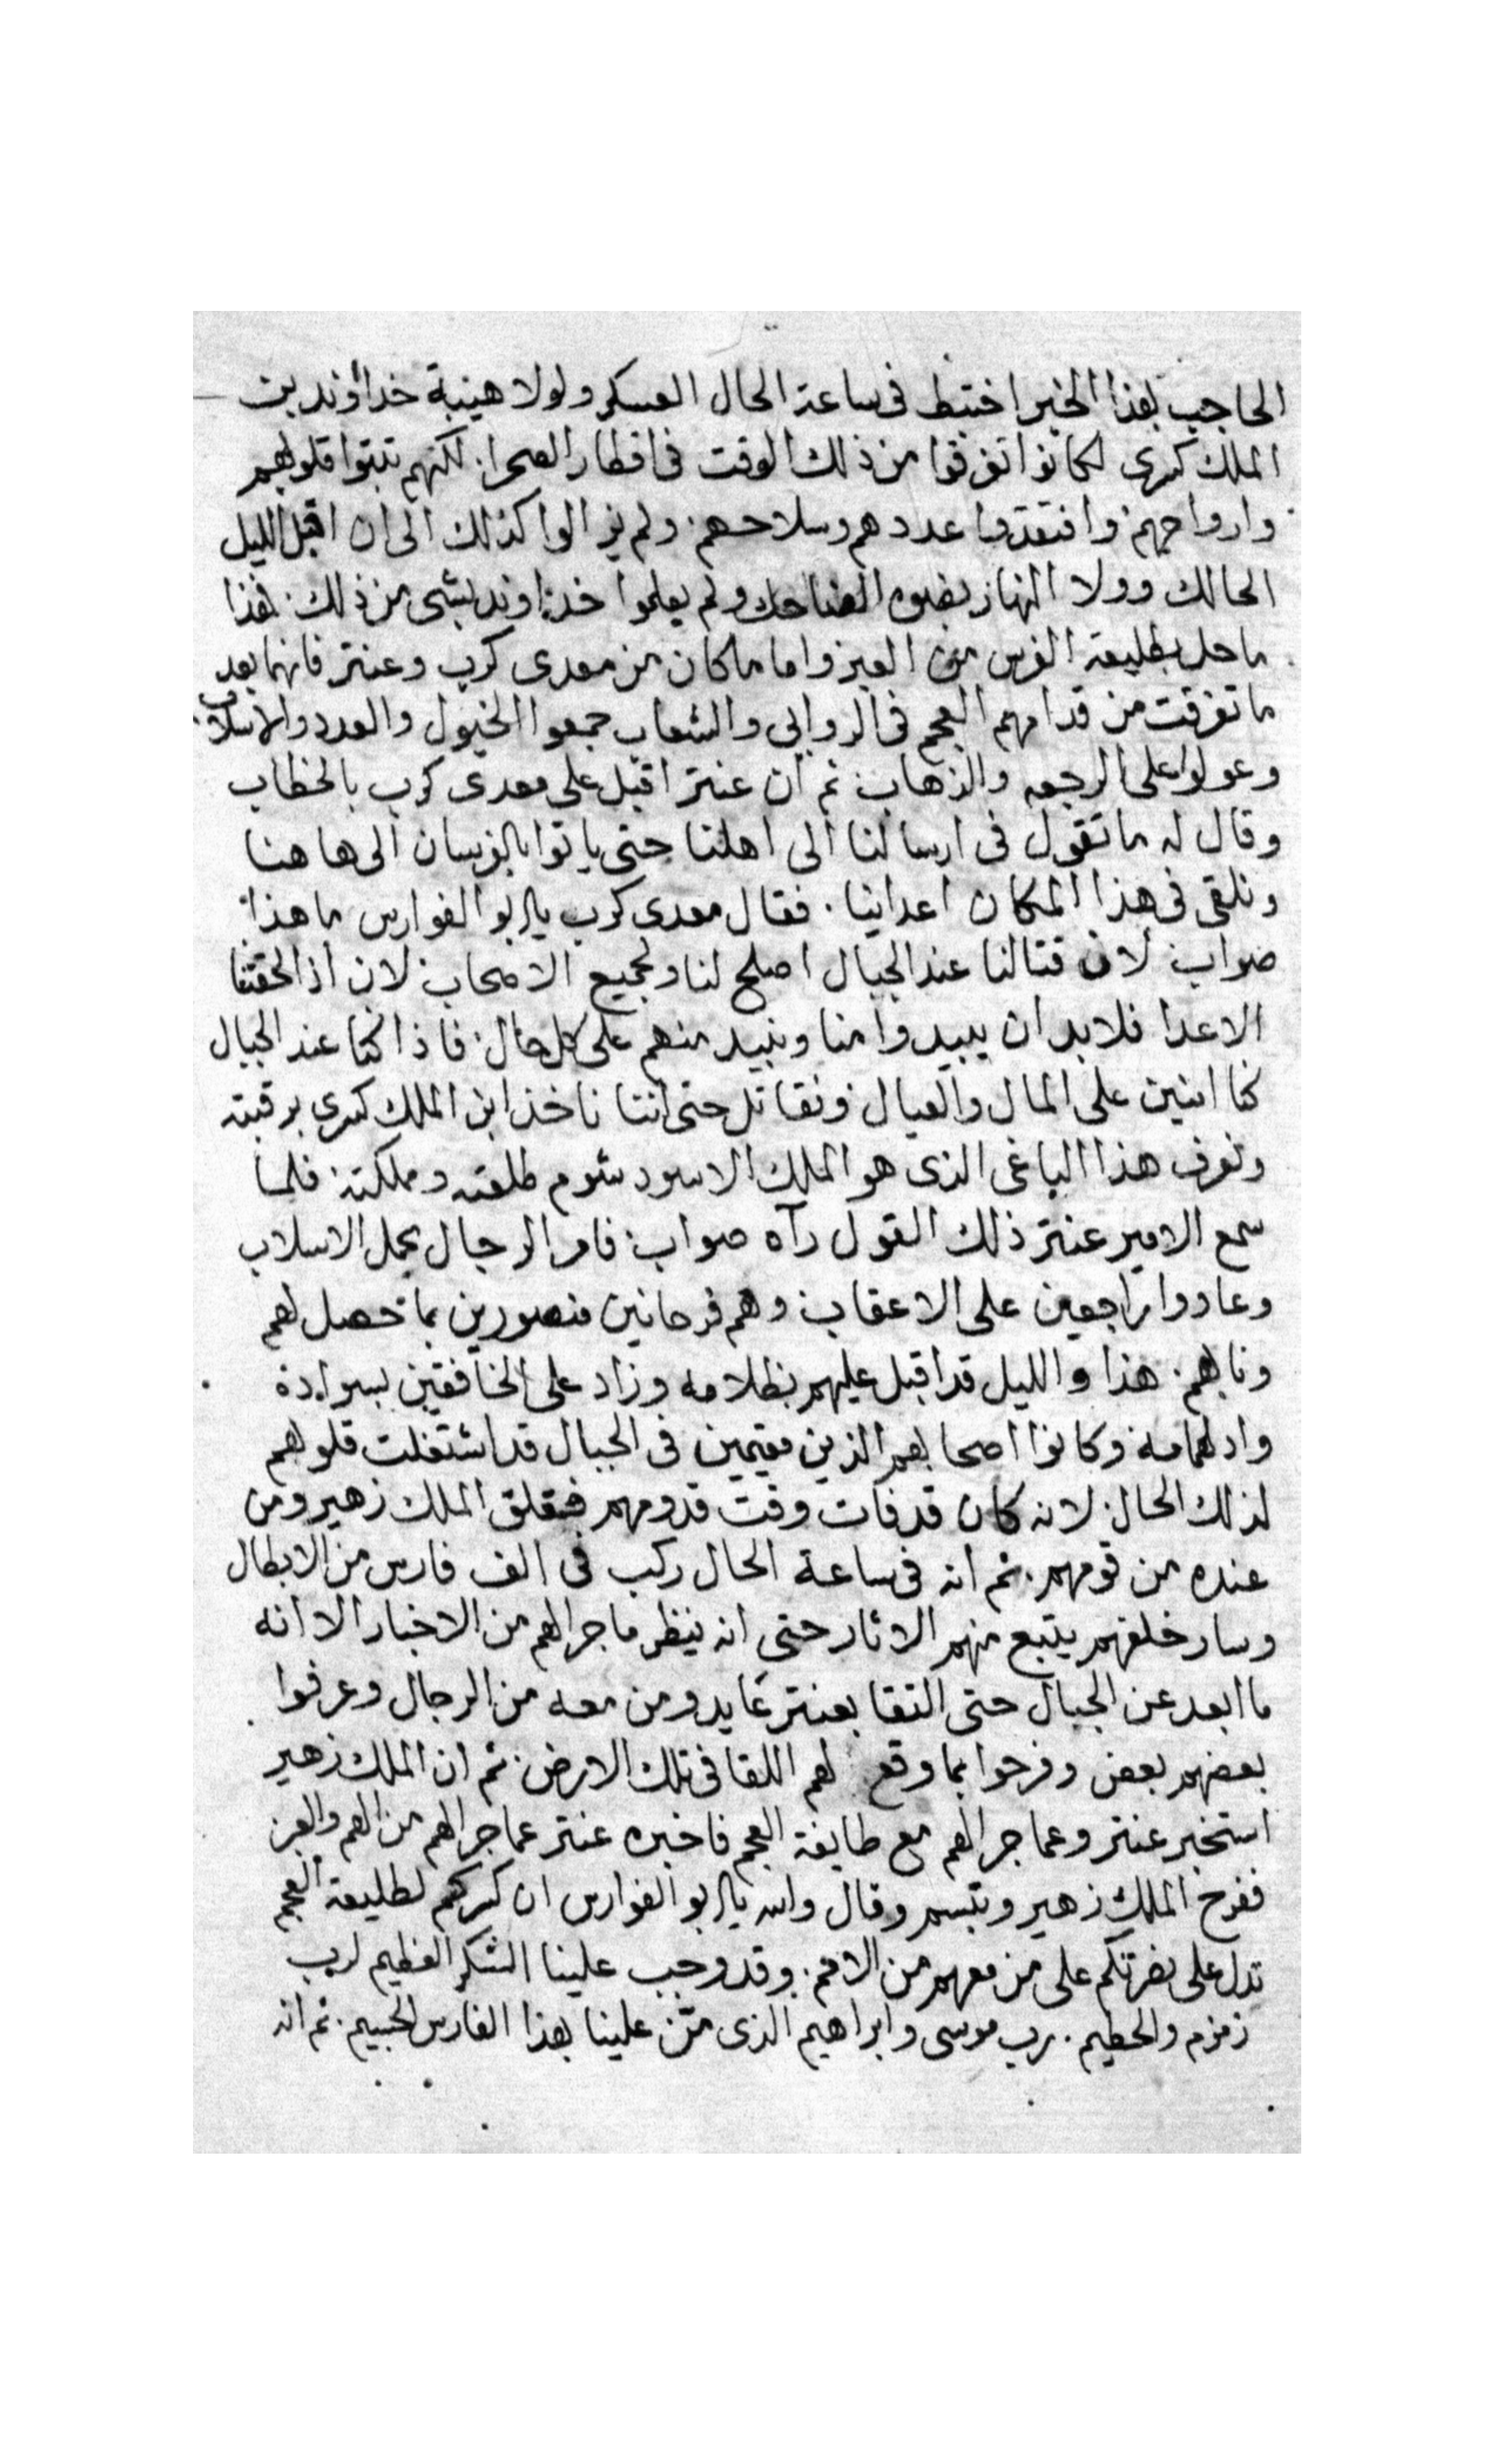 الحاجب بهذا الخبر اختبط فى ساعة الحال العسكر ولولا هيبة خداوند بن
الملك كسرى لكانوا تفرقوا من ذلك الوقت فى اقطار الصحرا. لكنهم تبتوا قلوبهم
وارواحهم وافتقدوا عددهم وسلاحهم. ولم يزالوا كذلك الى ان اقبل الليل
الحالك وولا النهار بضوه الضاحك ولم يعلموا خداوند بشى من ذلك. فهذا
ما حل بطليعة الفرس من العبر واما ما كان من معدى كرب وعنتر فانهما بعد
ما تفرقت من قدامهم العجم فى الروابى والشعاب جمعوا الخيول والعدد والاسلاب.
وعولوا على الرجعه والذهاب ثم ان عنتر اقبل على معدى كرب بالخطاب
وقال له ما تقول فى ارسالنا الى اهلنا حتى ياتوا بالفرسان الى هاهنا
ونلقى فى هذا المكان اعداينا. فقال معدى كرب يا ابو الفوارس ما هذا
صواب لان قتالنا عند الجبال اصلح لنا ولجميع الاصحاب لان اذا لحقتنا
الاعدا فلا بد ان يبيدوا منا ونبيد منهم على كل حال. فاذا كنا عند الجبال
كنا امنين على المال والعيال ونقاتل حتى اننا ناخذ ابن الملك كسرى برقبته
ونعرف هذا الباغى الذى هو الملك الاسود شوم طلعته ومملكته فلما
سمع الامير عنتر ذلك القول رآه صواب فامر الرجال بحمل الاسلاب
وعادوا راجعين على الاعقاب وهم فرحانين منصورين بما حصل لهم
ونابهم. هذا والليل قد اقبل عليهم بظلامه وزاد على الخافقين بسواده
وادلهمامه وكانوا اصحابهم الذين مقيمين فى الجبال قد اشتغلت قلوبهم
لذلك الحال لانه كان قد فات وقت قدومهم فقلق الملك زهير ومن
عنده من قومهم. ثم انه فى ساعة الحال ركب فى الف فارس من الابطال
وسار خلفهم يتبع منهم الاثار حتى انه ينظر ما جرا لهم من الاخبار الا انه
ما ابعد عن الجبال حتى التقا بعنتر عايد ومن معه من الرجال وعرفوا
بعضهم بعض وفرحوا بما وقع لهم اللقا فى تلك الارض. ثم ان الملك زهير
استخبر عنتر وعما جرا لهم مع طايفة العجم فاخبره عنتر عما جرا لهم من الهم والعبر
ففرح الملك زهير وتبسم وقال والله يا ابو الفوارس ان كسركم لطليعة العجم
تدل على نصرتكم على من معهم من الامم. وقد وجب علينا الشكر العظيم لرب
زمزم والحطيم. رب موسى وابراهيم الذى من علينا بهذا الفارس الجسيم. ثم انه